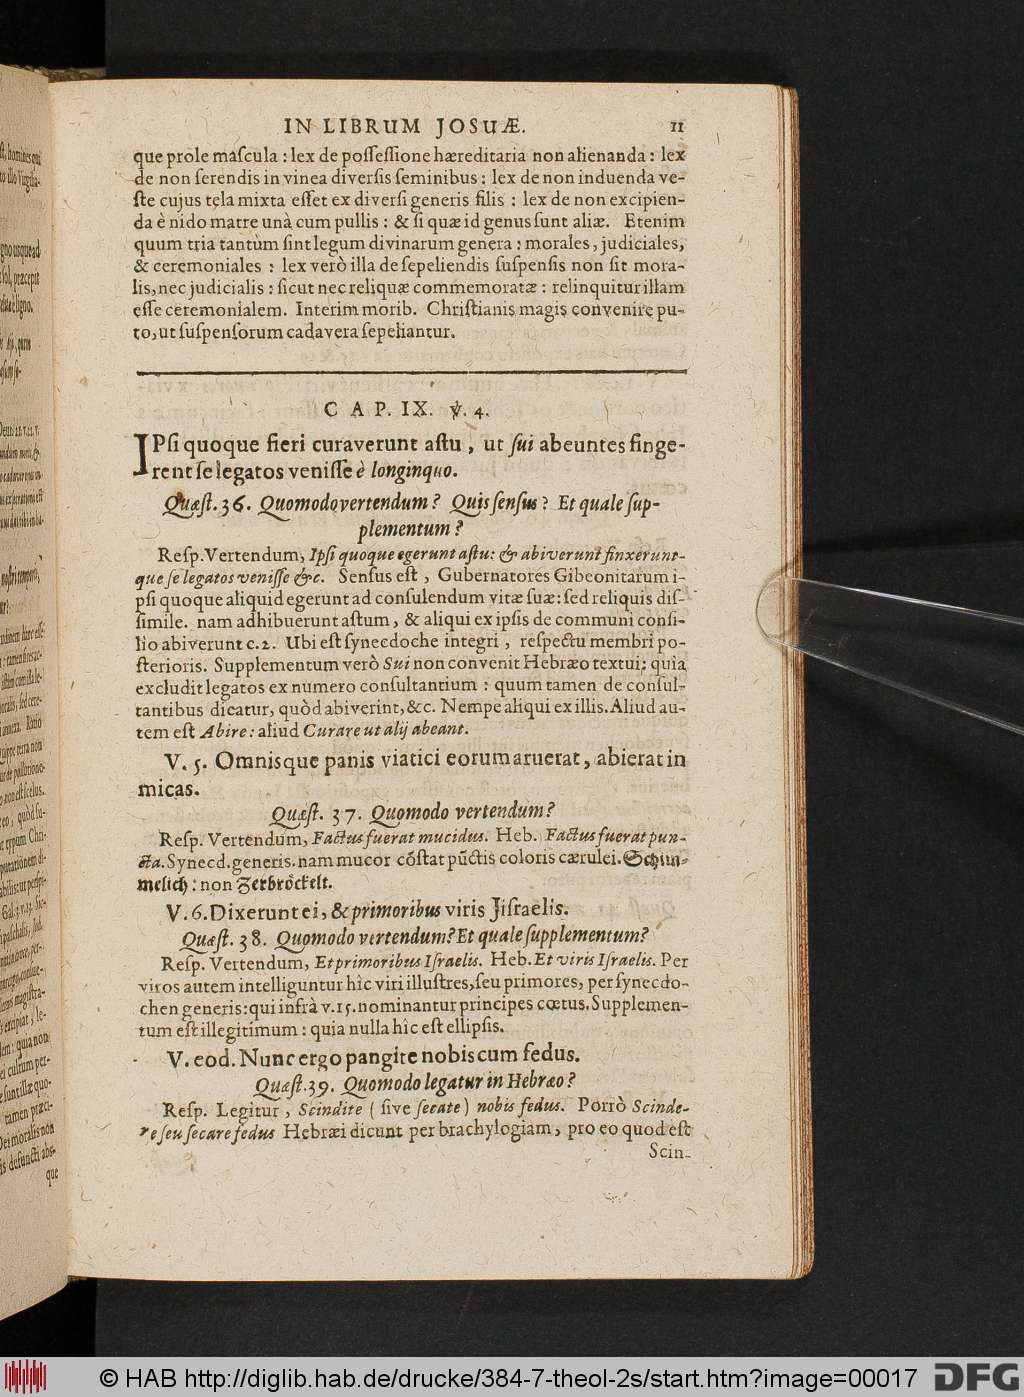 IN LIBRUM JOSUÆ. 11
que prole mascula : lex de possessione hæreditaria non alienanda : lex
de non serendis in vinea diversis seminibus : lex de non induenda ve-
ste cujus tela mixta esset ex diversi generis filis : lex de non excipien-
da è nido matre unà cum pullis : & si quæ id genus sunt aliæ. Etenim
quum tria tantùm sint legum divinarum genera : morales, judiciales,
& ceremoniales : lex verò illa de sepeliendis suspensis non sit mora-
lis, nec judicialis : sicut nec reliquæ commemoratæ : relinquitur illam
esse ceremonialem. Interim morib. Christianis magis convenire pu-
to, ut suspensorum cadavera sepeliantur.
CAP. IX. v. 4.
IPsi quoque fieri curaverunt astu, ut sui abeuntes finge-
rent se legatos venisse è longinquo.
Quæst. 36. Quomodo vertendum? Quis sensus? Et quale sup-
plementum?
Resp. Vertendum, Ipsi quoque egerunt astu: & abiverunt finxerunt-
que se legatos venisse &c. Sensus est, Gubernatores Gibeonitarum i-
psi quoque aliquid egerunt ad consulendum vitæ suæ: sed reliquis dis-
simile. nam adhibuerunt astum, & aliqui ex ipsis de communi consi-
lio abiverunt c.2. Ubi est synecdoche integri, respectu membri po-
sterioris. Supplementum verò Sui non convenit Hebræo textui; quia
excludit legatos ex numero consultantium : quum tamen de consul-
tantibus dicatur, quòd abiverint, &c. Nempe aliqui ex illis. Aliud au-
tem est Abire: aliud Curare ut alij abeant.
V. 5. Omnisque panis viatici eorum aruerat, abierat in
micas.
Quæst. 37. Quomodo vertendum?
Resp. Vertendum, Factus fuerat mucidus. Heb. Factus fuerat pun-
cta. Synecd. generis. nam mucor cõstat pũctis coloris cærulei. Schim-
melich: non Zerbröckelt.
V. 6. Dixerunt ei, & primoribus viris Jisraelis.
Quæst. 38. Quomodo vertendum? Et quale supplementum?
Resp. Vertendum, Et primoribus Israelis. Heb. Et viris Israelis. Per
viros autem intelliguntur hîc viri illustres, seu primores, per synecdo-
chen generis: qui infrà v. 15. nominantur principes cœtus. Supplemen-
tum est illegitimum : quia nulla hîc est ellipsis.
V. eod. Nunc ergo pangite nobiscum fedus.
Quæst. 39. Quomodo legatur in Hebræo?
Resp. Legitur, Scindite ( sive secate ) nobis fedus. Porrò Scinde-
re seu secare fedus Hebræi dicunt per brachylogiam, pro eo quod est
Scin-
© HAB http://diglib.hab.de/drucke/384-7-theol-2s/start.htm?image=00017
DFG